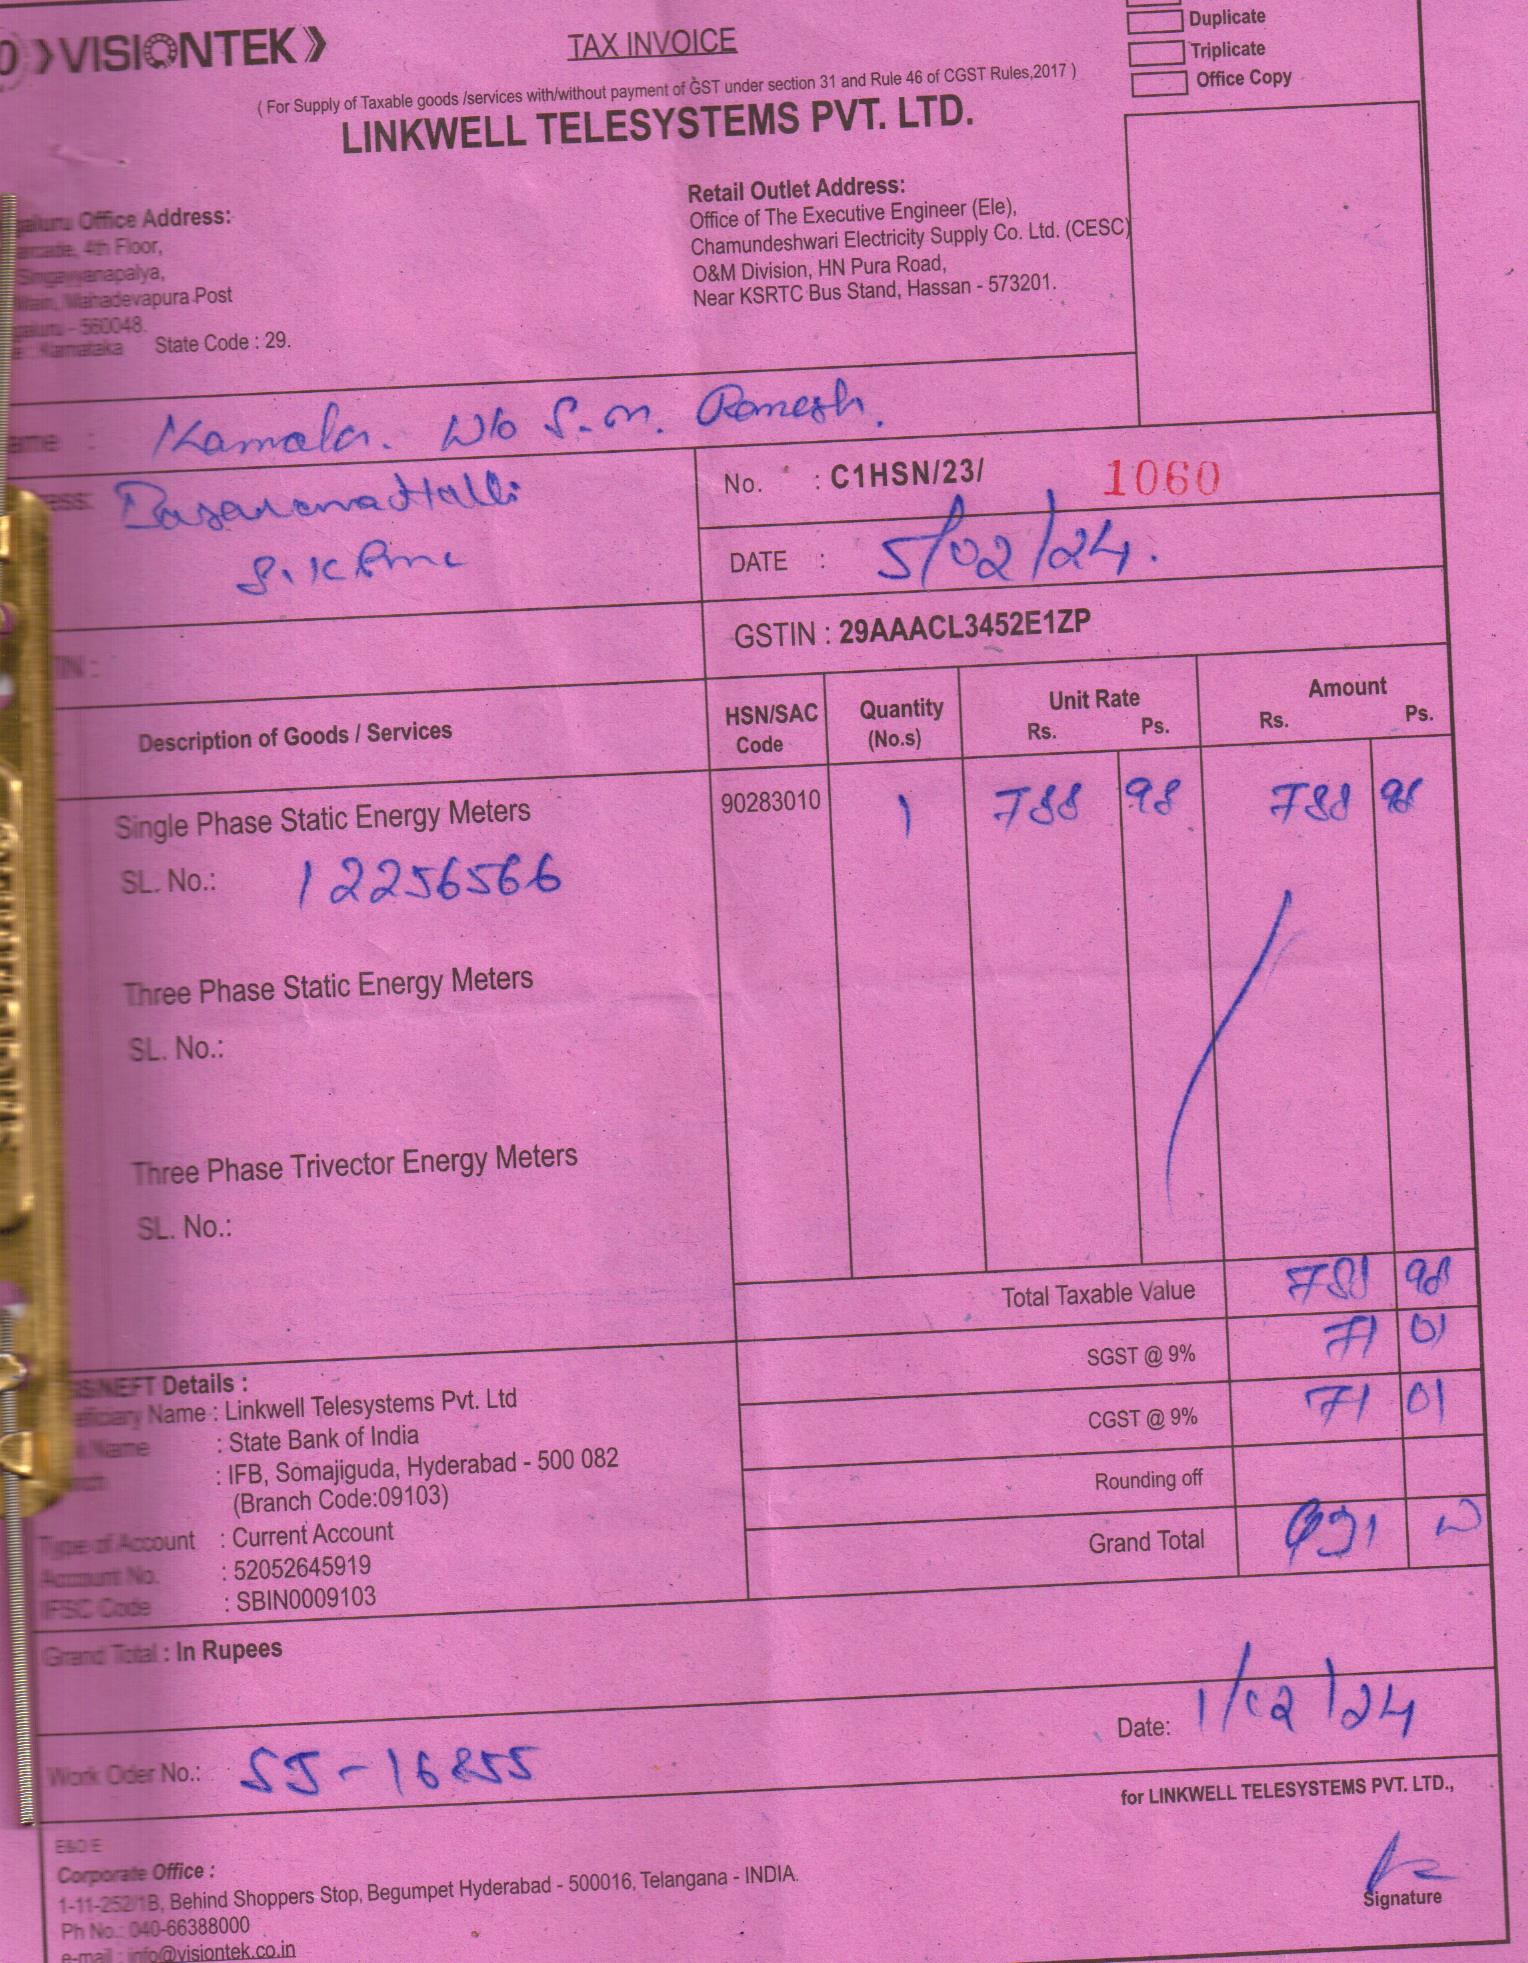 VISIONTEK
TAX INVOICE
Duplicate
Triplicate
Office Copy
( For Supply of Taxable goods /services with/without payment of GST under section 31 and Rule 46 of CGST Rules,2017 )
LINKWELL TELESYSTEMS PVT. LTD.
Office Address:
4th Floor,
Singayyanapalya,
Mahadevapura Post
- 560048.
Karnataka State Code : 29.
Retail Outlet Address:
Office of The Executive Engineer (Ele),
Chamundeshwari Electricity Supply Co. Ltd. (CESC)
O&M Division, HN Pura Road,
Near KSRTC Bus Stand, Hassan - 573201.
: Kamala. W/o S.M. Ramesh.
No. : C1HSN/23/ 1060
DATE : 5/02/24.
GSTIN : 29AAACL3452E1ZP
Description of Goods / Services
HSN/SAC Code
Quantity (No.s)
Unit Rate Rs. Ps.
Amount Rs. Ps.
Single Phase Static Energy Meters 90283010 1 788 98 788 98
SL. No.: 12256566
Three Phase Static Energy Meters
SL. No.:
Three Phase Trivector Energy Meters
SL. No.:
Total Taxable Value 788 98
SGST @ 9% 71 01
CGST @ 9% 71 01
Rounding off
Grand Total 931
NEFT Details :
Name : Linkwell Telesystems Pvt. Ltd
Name : State Bank of India
: IFB, Somajiguda, Hyderabad - 500 082
(Branch Code:09103)
Type of Account : Current Account
Account No. : 52052645919
IFSC Code : SBIN0009103
Grand Total : In Rupees
Date: 1/02/24
Work Oder No.: SJ-16855
for LINKWELL TELESYSTEMS PVT. LTD.,
E&O E
Corporate Office :
1-11-252/1B, Behind Shoppers Stop, Begumpet Hyderabad - 500016, Telangana - INDIA.
Ph No.: 040-66388000
e-mail : info@visiontek.co.in
Signature